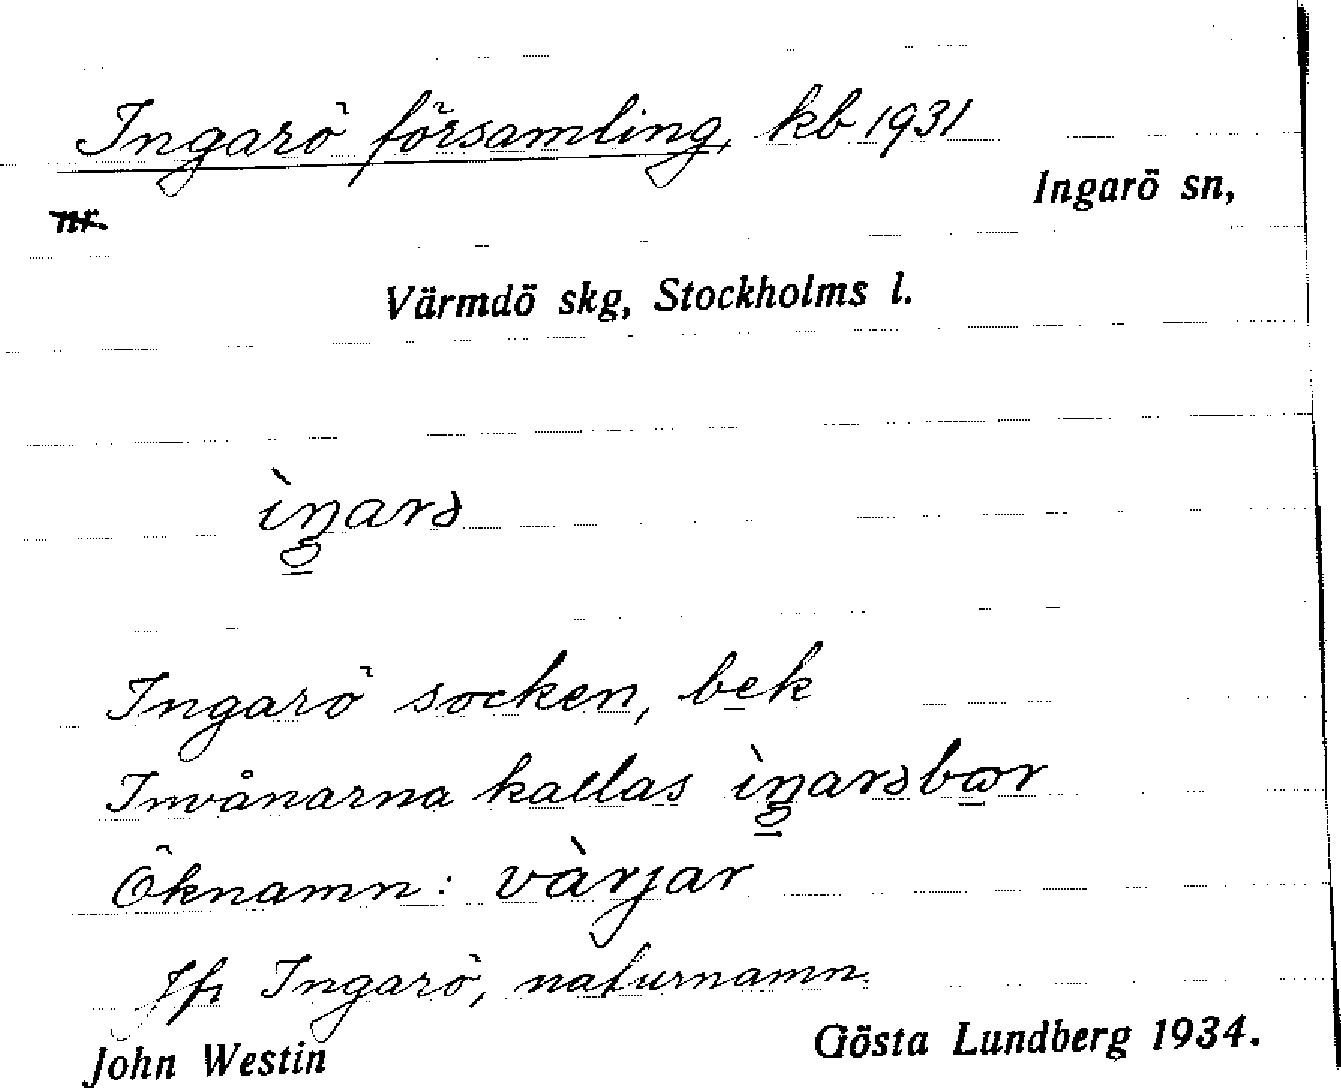 Ingarö församling, kb 1931
Ingarö sn,
Värmdö skg, Stockholms l.
Ingarö socken, bek
Invånarna kallas
Öknamn: vàrjar
Jfr Ingarö, naturnamn.
John Westin
Gösta Lundberg 1934.